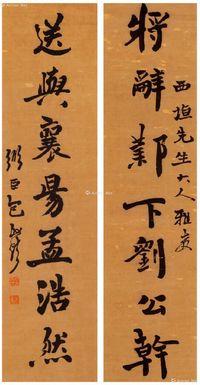 西垣先生大人雅属
將辭鄴下劉公幹
送與襄陽孟浩然